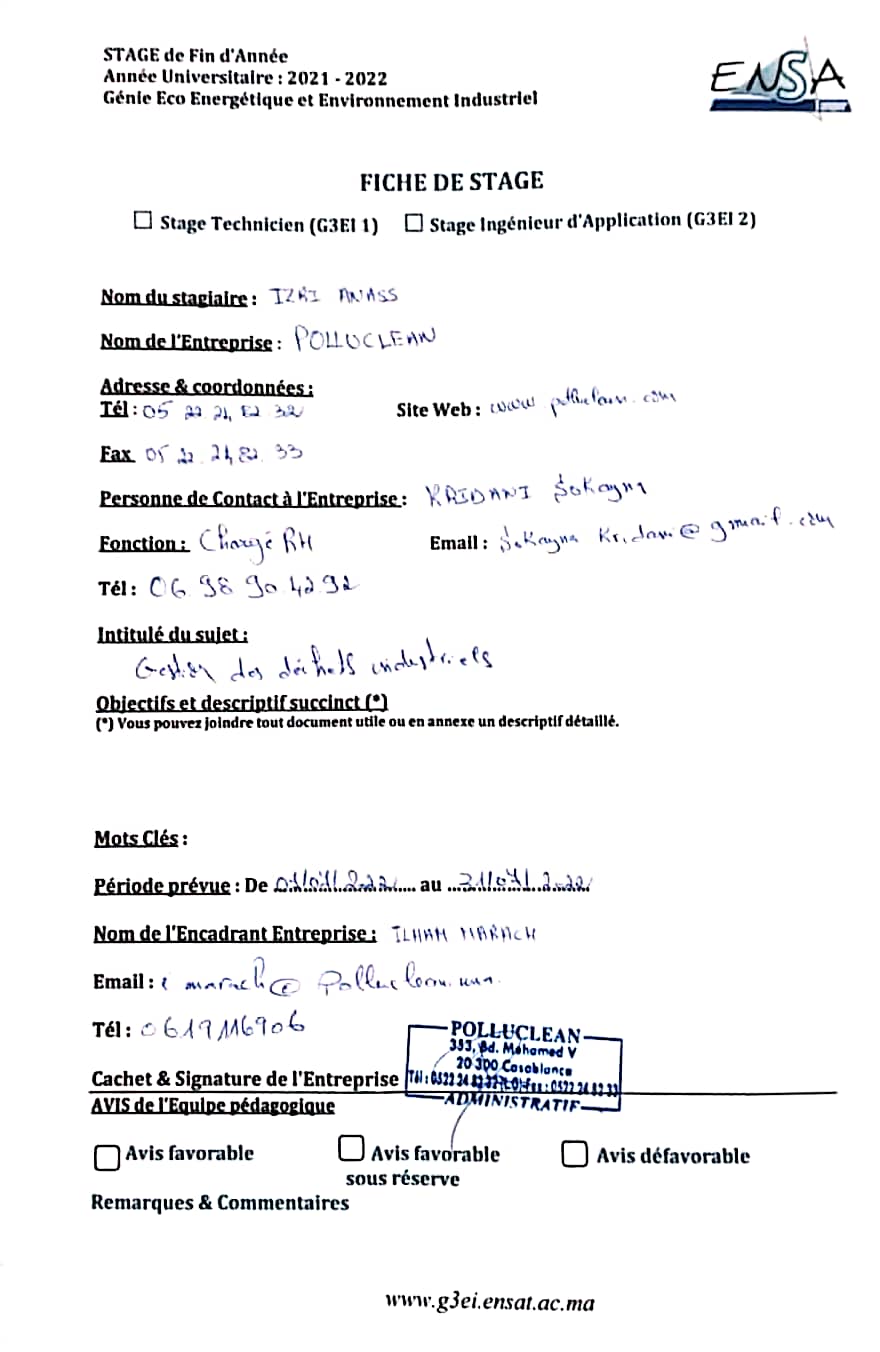 STAGE de Fin d'Année
Année Universitaire : 2021 - 2022
Génie Eco Energétique et Environnement Industriel
ENSA
FICHE DE STAGE
Stage Technicien (G3EI 1) Stage Ingénieur d'Application (G3EI 2)
Nom du stagiaire : IZRI ANASS
Nom de l'Entreprise : POLLUCLEAN
Adresse & coordonnées :
Tél : 05 22 24 82 32 Site Web : www polluclean.com
Fax 05 22 24 82 33
Personne de Contact à l'Entreprise : KRIDANI Sokayna
Fonction : Chargé RH Email : Sokayna Kridani@gmail.com
Tél : 06 98 90 42 92
Intitulé du sujet :
Gestion des déchets industriels
Objectifs et descriptif succinct (*)
(*) Vous pouvez joindre tout document utile ou en annexe un descriptif détaillé.
Mots Clés :
Période prévue : De 01/07/2022 au 31/07/2022
Nom de l'Encadrant Entreprise : ILHAM MARACH
Email : i marach@
Tél : 0619116906
POLLUCLEAN
393, Bd. Mohamed V
20 300 Casablanca
Tél : 0522 24 82 32 Fax : 0522 24 82 33
ADMINISTRATIF
Cachet & Signature de l'Entreprise
AVIS de l'Equipe pédagogique
Avis favorable Avis favorable sous réserve Avis défavorable
Remarques & Commentaires
www.g3ei.ensat.ac.ma